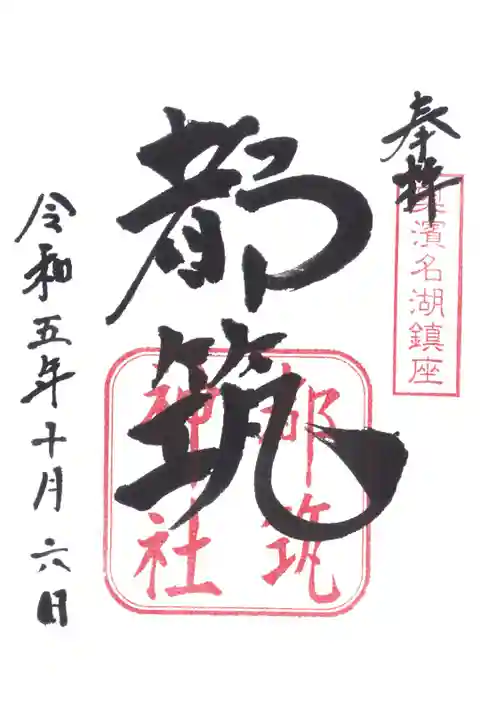 奉拝
奥濱名湖鎮座
都筑
都筑
神社
令和五年十月六日